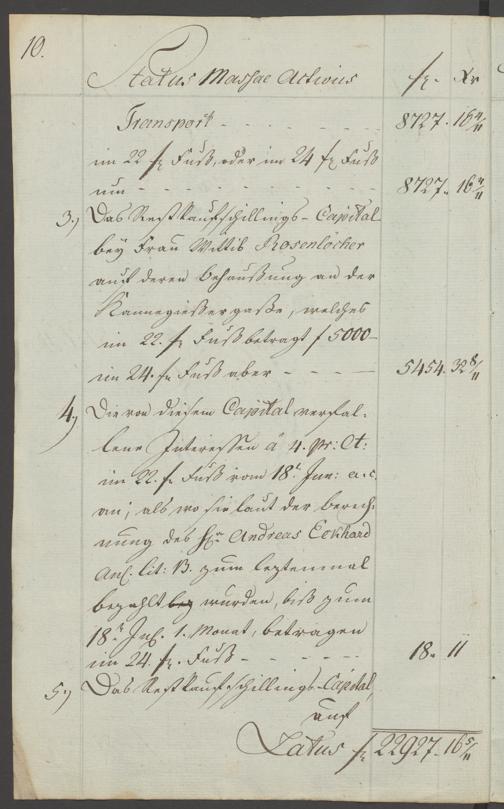 10.
Status Massae Activus fl. Xr
Transport - - - - - - 8727. 16 4/11
im 22 fl Fuß, oder im 24 fl Fuß
nun - - - - - - - 8727. 16 4/11
3.) Das Restkaufschillings-Capital
bey Frau Wittib Rosenlöcher
auf deren Behaußung an der
Kannegießergaße, welches
im 22. fl Fuß betragt f 5000—
im 24. fl Fuß aber - - - — 5454. 32 8/11
4.) Die von diesem Capital verfal-
lene Interessen à 4. pr: Ct:
im 22. fl Fuß vom 18t Jun: a. c.
an, als wo sie laut der berech-
nung des Hn Andreas Eckhard
Anl. lit: B. zum leztenmal
bezahlt wurden, biß zum
18t Jul. 1. Monat, betragen
im 24. fl. Fuß - - - - - 18. 11
5.) Das Restkaufschillings-Capital,
auf
Latus fl 22927. 16 5/11